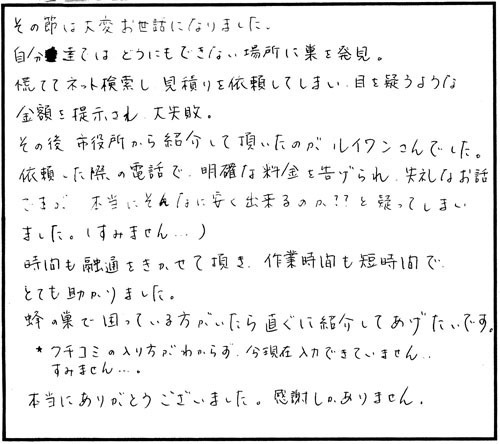 その節は大変お世話になりました。
自分達ではどうにもできない場所に巣を発見。
慌ててネット検索し見積りを依頼してしまい、目を疑うような
金額を提示され、大失敗。
その後市役所から紹介して頂いたのがルイワンさんでした。
依頼した際の電話で、明確な料金を告げられ、失礼なお話
ですが、本当にそんなに安く出来るのか??と疑ってしまい
ました。(すみません...)
時間も融通をきかせて頂き、作業時間も短時間で、
とても助かりました。
蜂の巣で困っている方がいたら直ぐに紹介してあげたいです。
*クチコミの入り方がわからず、今現在入力できていません..
すみません...。
本当にありがとうございました。感謝しかありません。